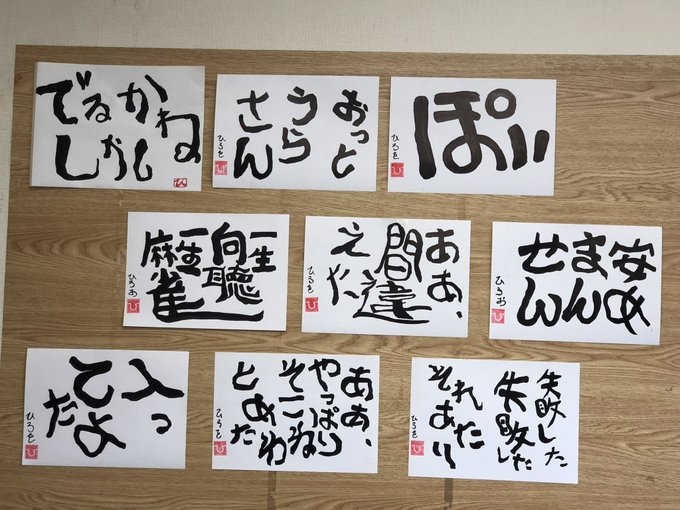 でるかね
しかし
おっと
うら
さん
ひろを
ぽい
ひろを
一生
向聴
一生
麻雀
ひろお
ああ、
間違
えた
ひろを
安め
まん
せん
ひろお
入っ
てよ
た
ひろを
ああ、
やっぱり
そこねわ
とめた
ひろを
失敗した
失敗した
それ
あたり
ひろを